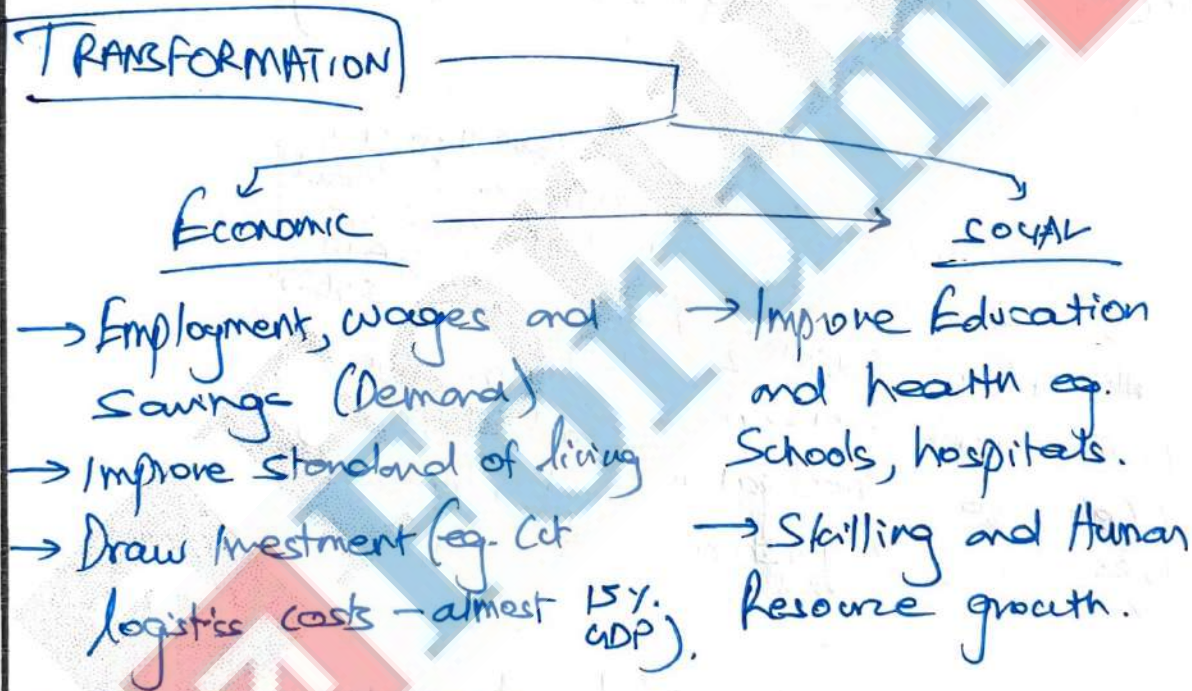 TRANSFORMATION
ECONOMIC
SOCIAL
→ Employment, wages and
savings (Demand)
→ Improve standard of living
→ Draw Investment (eg. Cut
logistics costs – almost 15%
GDP).
→ Improve Education
and health eg.
Schools, hospitals.
→ Skilling and Human
Resource growth.
Forum